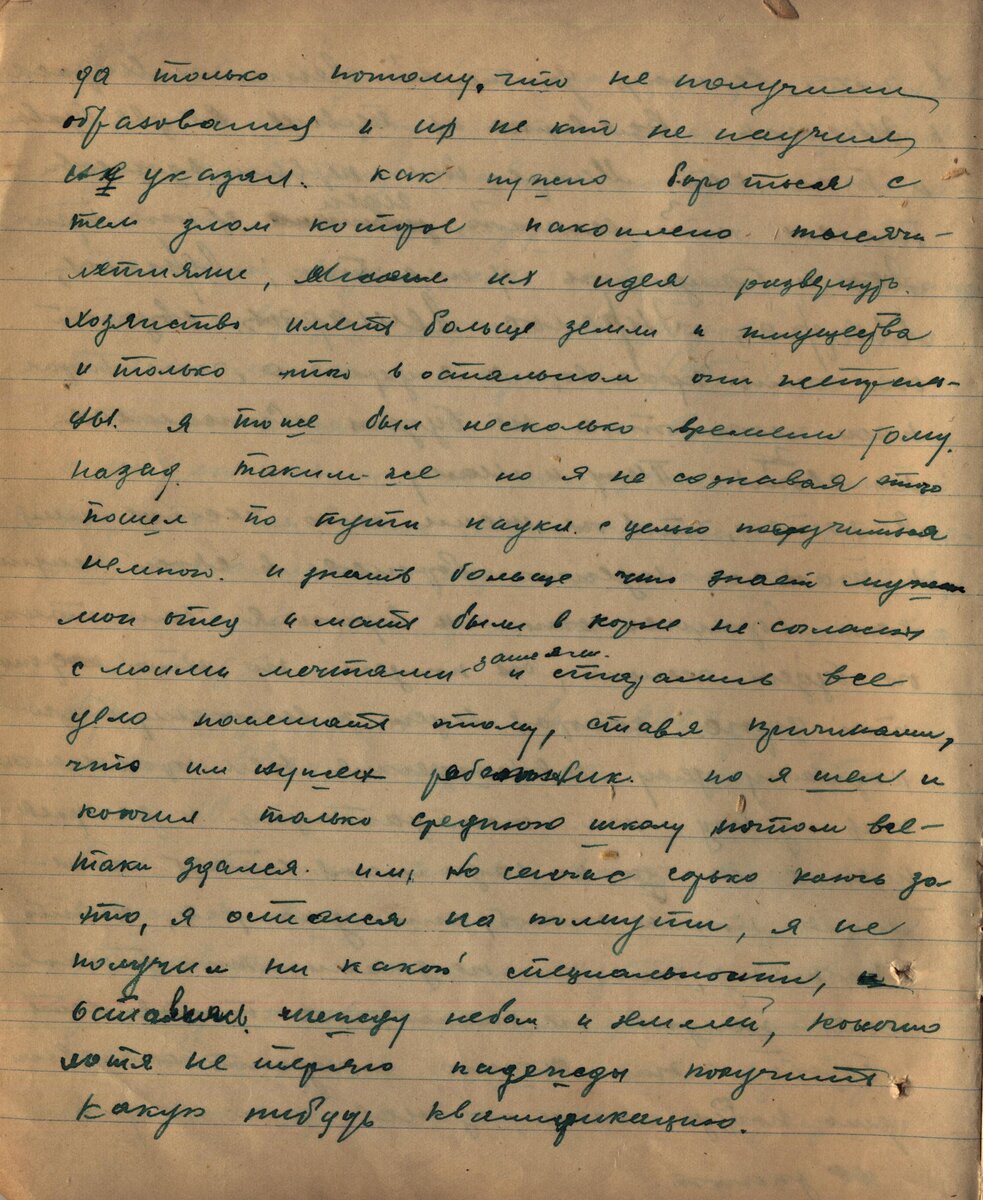 да только потому, что не получили
образования и их не кто не научил
не указал. как нужно бороться с
тем злом которое накоплено тысяче-
летиями, их идея развернуть.
хозяйство иметь больше земли и имущества
и только это в остальном они
я тоже был несколько времени тому.
назад таким-же но я не сознавая этого
пошел по пути науки. с целью поучиться
немного. и знать больше что знает мужик
мои отец и мать были в корне не согласны
с моими мечтами затеями. и старались все
дело помешать этому, ставя причинами,
что им нужен работник. но я шел и
кончил только среднюю школу потом все-
таки здался. им, но сейчас горько каюсь за
это, я остался на полпути, я не
получил ни какой специальности,
оставшись между небом и землей, конечно
хотя не теряю надежды получить
какую нибудь квалификацию.